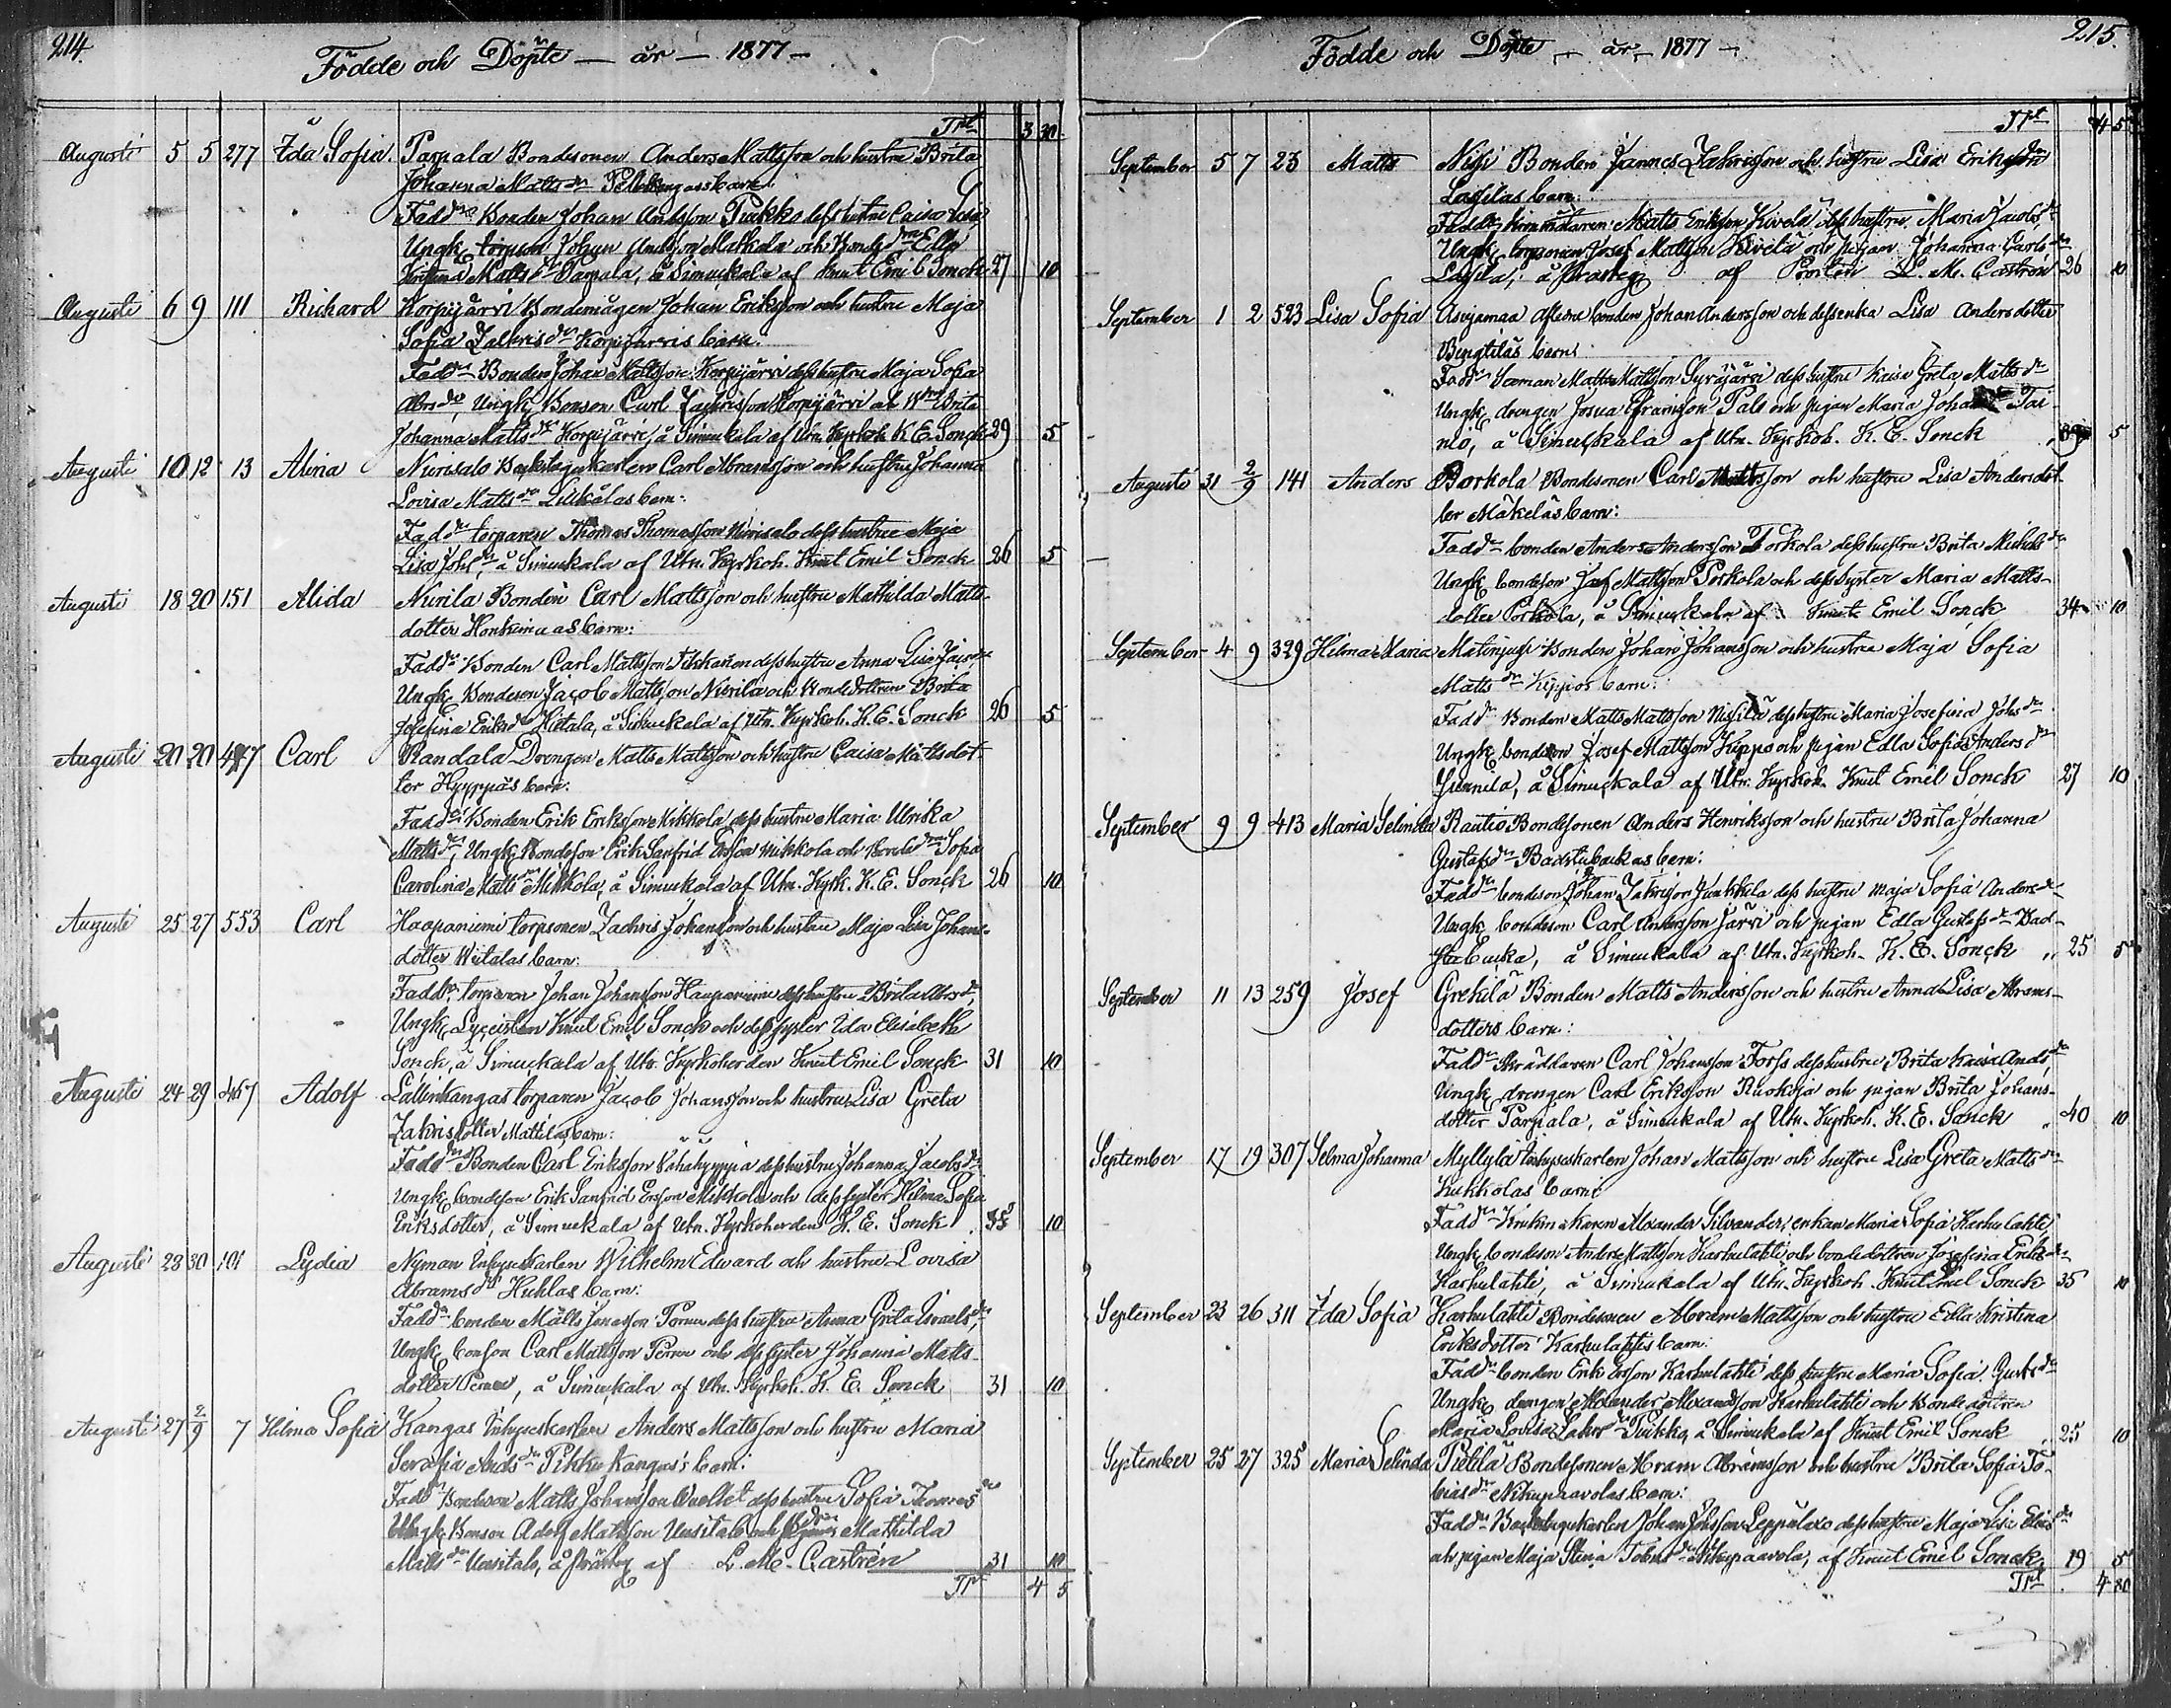 214.
Födde och Döpte — år — 1877 —
Trt 3 30
Augusti 5 5 277 Ida Sofia. Parpala Bondesonen Anders Mattsson och hustru Brita
Johanna Mattsdr barn.
Faddr Bonden Johan Andsson Puikko dess hustru Caisa Lisa
Ungk. torpson Johan Andsson Matkala och Bondedrn Ella
Kristina Mattsdr Parpala, å Simuckala af Knut Emil Sonck 27 10
Augusti 6 9 111 Richard Korpijärvi Bondemågen Johan Eriksson och hustru Maja
Sofia Zakrisdr Korpijärvis barn.
Faddr Bonden Johan Mattsson Korpijärvi dess hustru Maja Sofia
Abrsdr, Ungk. Bonson Carl Zachrisson Korpijärvi och Bdrn Brita
Johanna Mattsdr Korpijärvi, å Simuckala af Utn. Kyrkoh. K. E. Sonck 29 5
Augusti 10 12 13 Alina Nurisalo Backstugukarlen Carl Abramsson och hustru Johanna
Lovisa Mattsdr barn:
Faddr torparen Thomas Thomasson Nurisalo dess hustru Maja
Lisa Johsdr, å Simuckala af Utn. Kyrkoh. Knut Emil Sonck 26 5
Augusti 18 20 151 Alida Nurila Bonden Carl Mattsson och hustru Mathilda Matts-
dotter barn:
Faddr Bonden Carl Mattsson dess hustru Anna Lisa
Ungk. Bondeson Jacob Mattsson Nurila och Bondedottren Brita
Josefina Eriksdr Hietala, å Simuckala af Utn. Kyrkoh. K. E. Sonck 26 5
Augusti 20 20 447 Carl Randala Drengen Matts Mattsson och hustru Caisa Mattsdot-
ter Hyyppäs barn:
Faddr: Bonden Erik Eriksson Mikkola dess hustru Maria Ulrika
Mattsdr, Ungk. Bondeson Erik Sanfrid Ersson Mikkola och Bondedrn Sofia
Carolina Mattsdr Mikkola, å Simuckala af Utn. Kyrk. K. E. Sonck 26 10
Augusti 25 27 553 Carl Haapaniemi torpsonen Zachris Johansson och hustru Maja Lisa Johans-
dotter Wiitalas barn:
Faddr, torparen Johan Johansson Haapaniemi dess hustru Brita Abrsdr,
Ungk. Lyceisten Knut Emil Sonck och dess syster Ida Elisabeth
Sonck, å Simuckala af Utn. Kyrkoherden Knut Emil Sonck 31 10
Augusti 24 29 467 Adolf Lallinkangas torparen Jacob Johansson och hustru Lisa Greta
Zakrisdotter Mattilas barn:
Faddr Bonden Carl Eriksson Vähähyyppä dess hustru Johanna Jacobsdr
Ungk. bondeson Erik Sanfrid Ersson Mikkola och dess syster Hilma Sofia
Eriksdotter, å Simuckala af Utn. Kyrkoherden K. E. Sonck 10
Augusti 28 30 101 Lydia Nyman Inhyseskarlen Wilhelm Edward och hustru Lovisa
Abramsdr Huhlas barn:
Faddr bonden Matts Jonasson dess hustru Anna Greta Israelsdr,
Ungk. bonson Carl Mattsson och dess syster Johanna Matts-
dotter å Simuckala af Utn. Kyrkoh. K. E. Sonck 31 10
Augusti 27 2/9 7 Hilma Sofia Kangas Inhyseskarlen Anders Mattsson och hustru Maria
Serafia Andsdr Pikkukangas's barn:
Faddr Bondeson Matts Johansson dess hustru Sofia Thomasdr
Ungk. Bonson Adolf Mattsson Uusitalo och Mathilda
Mattsdr Uusitalo, å af L. M. Castrén 31 10
Trt 4 5
215.
Födde och Döpte — år — 1877 —
Trt 4 5
September 5 7 23 Matts Bonden Jannes Zakrisson och hustru Lisa Eriksdr
Lassilas barn:
Faddr Matts Eriksson Kivelä dess hustru Maria Jacobsdr
Ungk. torpsonen Josef Mattsson Kivelä och pigan Johanna Carlsdr
Lassila, å af L. M. Castrén 26 10
September 1 2 523 Lisa Sofia Aflidne bonden Johan Andersson och dess enka Lisa Andersdotter
Bengtilas barn:
Faddr Matts Mattsson Syväjärvi dess hustru Kaisa Greta Mattsdr
Ungk. drengen Josua Palo och pigan Maria
å Simuckala af Utn. Kyrkoh. K. E. Sonck 5
Augusti 31 2/9 141 Anders Porkola Bondesonen Carl Mattsson och hustru Lisa Andersdot-
ter Mäkeläs barn:
Faddr bonden Anders Andersson Porkola dess hustru Brita Michelsdr
Ungk. bondeson Josef Mattsson Porkola och dess syster Maria Matts-
dotter Porkola, å Simuckala af Knut Emil Sonck 34 10
September 4 9 329 Hilma Maria Bonden Johan Johansson och hustru Maja Sofia
Mattsdr Kippos barn:
Faddr Bonden Matts Mattsson Nissilä dess hustru Maria Josefina Johsdr
Ungk. bondeson Josef Mattsson Kippo och pigan Edla Sofia Andersdr
Junnila, å Simuckala af Utn. Kyrkoh. Knut Emil Sonck 27 10
September 9 9 413 Maria Selinda Rautio Bondesonen Anders Henriksson och hustru Brita Johanna
Gustafsdr Badstubackas barn:
Faddr bondeson Johan Zakrisson Junkkila dess hustru Maja Sofia Andersdr
Ungk. bondeson Carl Andersson Järvi och pigan Edla Gustafsdr Bad-
stubacka, å Simuckala af Utn. Kyrkoh. K. E. Sonck „ 25 5
September 11 13 259 Josef Grekilä Bonden Matts Andersson och hustru Anna Lisa Abrams-
dotters barn:
Faddr Skräddaren Carl Johansson Forss dess hustru Brita Kaisa Andsdr
Ungk. drengen Carl Eriksson Ruokoja och pigan Brita Johans-
dotter Parpala, å Simuckala af Utn. Kyrkoh. K. E. Sonck „ 40 10
September 17 19 307 Selma Johanna Myllylä Inhyseskarlen Johan Mattsson och hustru Lisa Greta Mattsdr
Kukkolas barn:
Faddr Krukmakaren Alexander Silvander, enkan Maria Sofia Karhulahti,
Ungk. bondeson Anders Mattsson Karhulahti och bondedottren Josefina Eriksdr
Karhulahti, å Simuckala af Utn. Kyrkoh. Knut Emil Sonck 35 10
September 23 26 311 Ida Sofia Karhulahti Bondesonen Abram Mattsson och hustru Edla Kristina
Eriksdotter Karhulahtis barn:
Faddr bonden Erik Ersson Karhulahti dess hustru Maria Sofia Gustsdr
Ungk. drengen Alexander Alexandsson Karhulahti och Bondedottren
Maria Lovisa Zakrsdr Puikko, å Simuckala af Knut Emil Sonck „ 25 10
September 25 27 325 Maria Selinda Pietilä Bondesonen Abram Abramsson och hustru Brita Sofia To-
biasdr Nikupaavolas barn:
Faddr Backstugukarlen Johan Johsson Leppälaxo dess hustru Maja Lisa Eliasdr
och pigan Maja Stina Tobiasdr Nikupaavola, af Knut Emil Sonck. 19 5
Trt 4 80